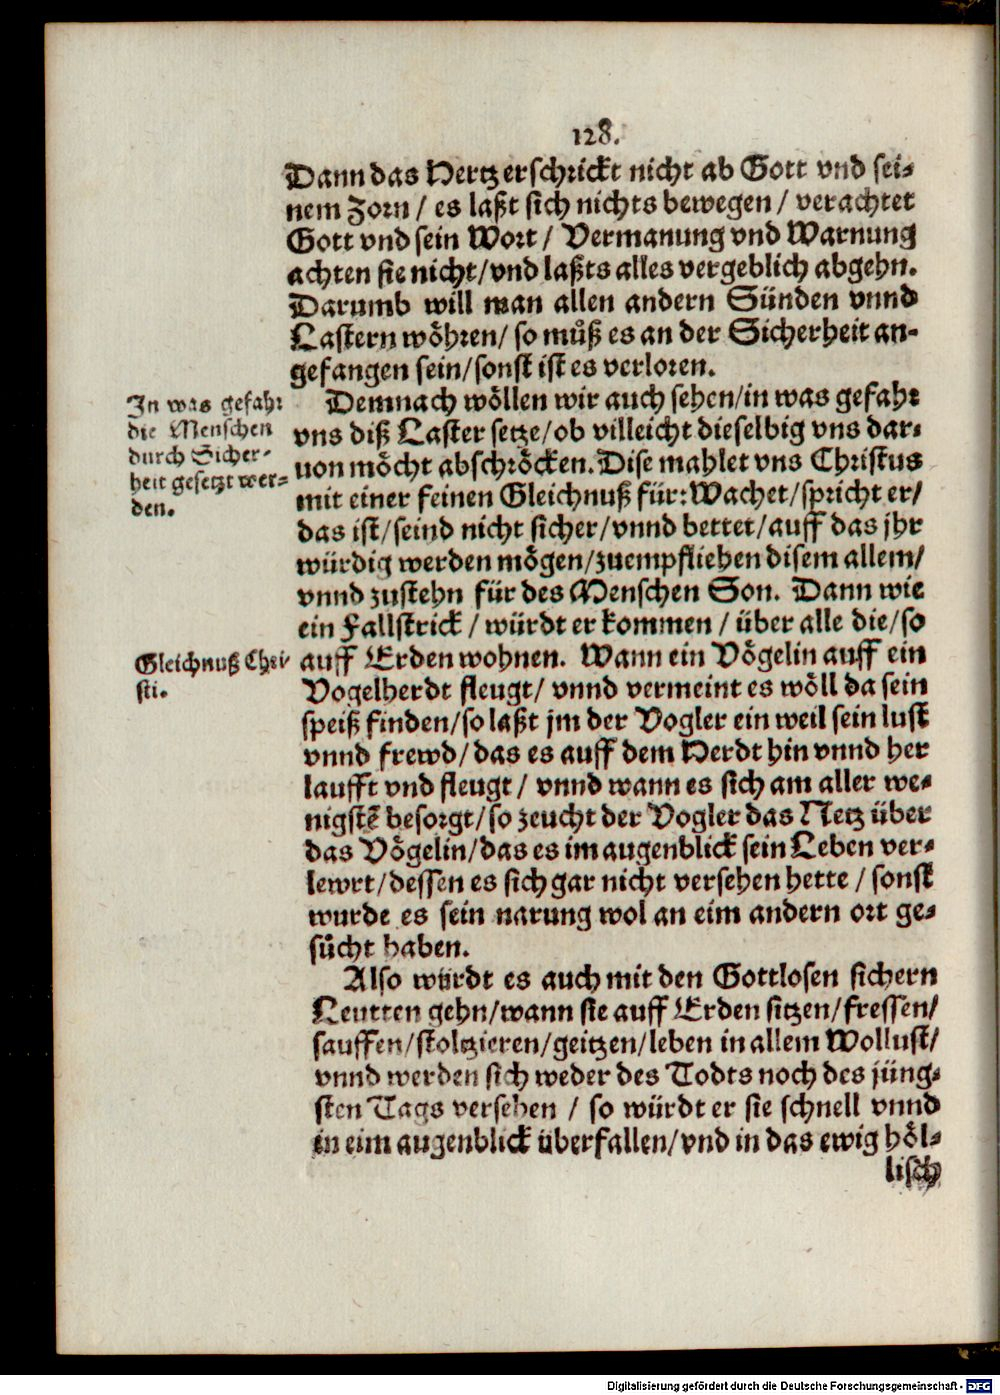 128.
Dann das Hertz erschrickt nicht ab Gott vnd sei-
nem Zorn / es laßt sich nichts bewegen / verachtet
Gott vnd sein Wort / Vermanung vnd Warnung
achten sie nicht/vnd laßts alles vergeblich abgehn.
Darumb will man allen andern Sünden vnnd
Lastern wöhren/ so můß es an der Sicherheit an-
gefangen sein/sonst ist es verloren.
In was gefahr
die Menschen
durch Sicher-
heit gesetzt wer-
den.
Demnach wöllen wir auch sehen/in was gefahr
vns diß Laster setze/ob villeicht dieselbig vns dar-
uon möcht abschröcken. Dise mahlet vns Christus
mit einer feinen Gleichnuß für: Wachet/spricht er/
das ist/seind nicht sicher/vnnd bettet/auff das jhr
würdig werden mögen/zuempfliehen disem allem/
vnnd zustehn für des Menschen Son. Dann wie
ein Fallstrick / würdt er kommen / über alle die/so
Gleichnuß Chri-
sti.
auff Erden wohnen. Wann ein Vögelin auff ein
Vogelherdt fleugt/ vnnd vermeint es wöll da sein
speiß finden/so laßt jm der Vogler ein weil sein lust
vnnd frewd/das es auff dem Herdt hin vnnd her
laufft vnd fleugt / vnnd wann es sich am aller we-
nigstē besorgt/so zeucht der Vogler das Netz über
das Vögelin/das es im augenblick sein Leben ver-
lewrt/dessen es sich gar nicht versehen hette / sonst
wurde es sein narung wol an eim andern ort ge-
sůcht haben.
Also würdt es auch mit den Gottlosen sichern
Leutten gehn/wann sie auff Erden sitzen/fressen/
sauffen/stoltzieren/geitzen/leben in allem Wollust/
vnnd werden sich weder des Todts noch des jüng-
sten Tags versehen / so würdt er sie schnell vnnd
in eim augenblick überfallen/vnd in das ewig höl-
lisch
Digitalisierung gefördert durch die Deutsche Forschungsgemeinschaft - DFG